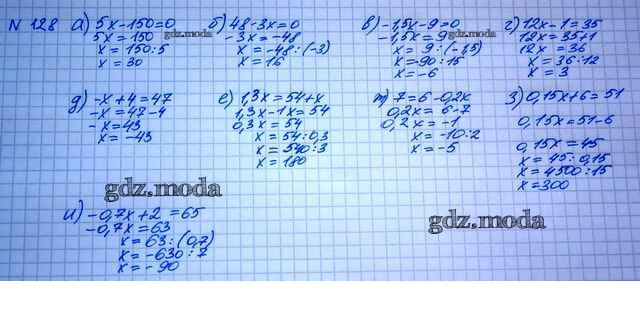 N 128
а) 5x-150=0
5x=150
x=150:5
x=30
б) 48-3x=0
-3x=-48
x=-48:(-3)
x=16
в) -1,5x-9=0
-1,5x=9
x=9:(-1,5)
x=-90:15
x=-6
г) 12x-1=35
12x=35+1
12x=36
x=36:12
x=3
gdz.moda
gdz.moda
д) -x+4=47
-x=47-4
-x=43
x=-43
е) 1,3x=54+x
1,3x-1x=54
0,3x=54
x=54:0,3
x=540:3
x=180
ж) 7=6-0,2x
0,2x=6-7
0,2x=-1
x=-10:2
x=-5
з) 0,15x+6=51
0,15x=51-6
0,15x=45
x=45:0,15
x=4500:15
x=300
gdz.moda
и) -0,7x+2=65
-0,7x=63
x=63:(0,7)
x=-630:7
x=-90
gdz.moda